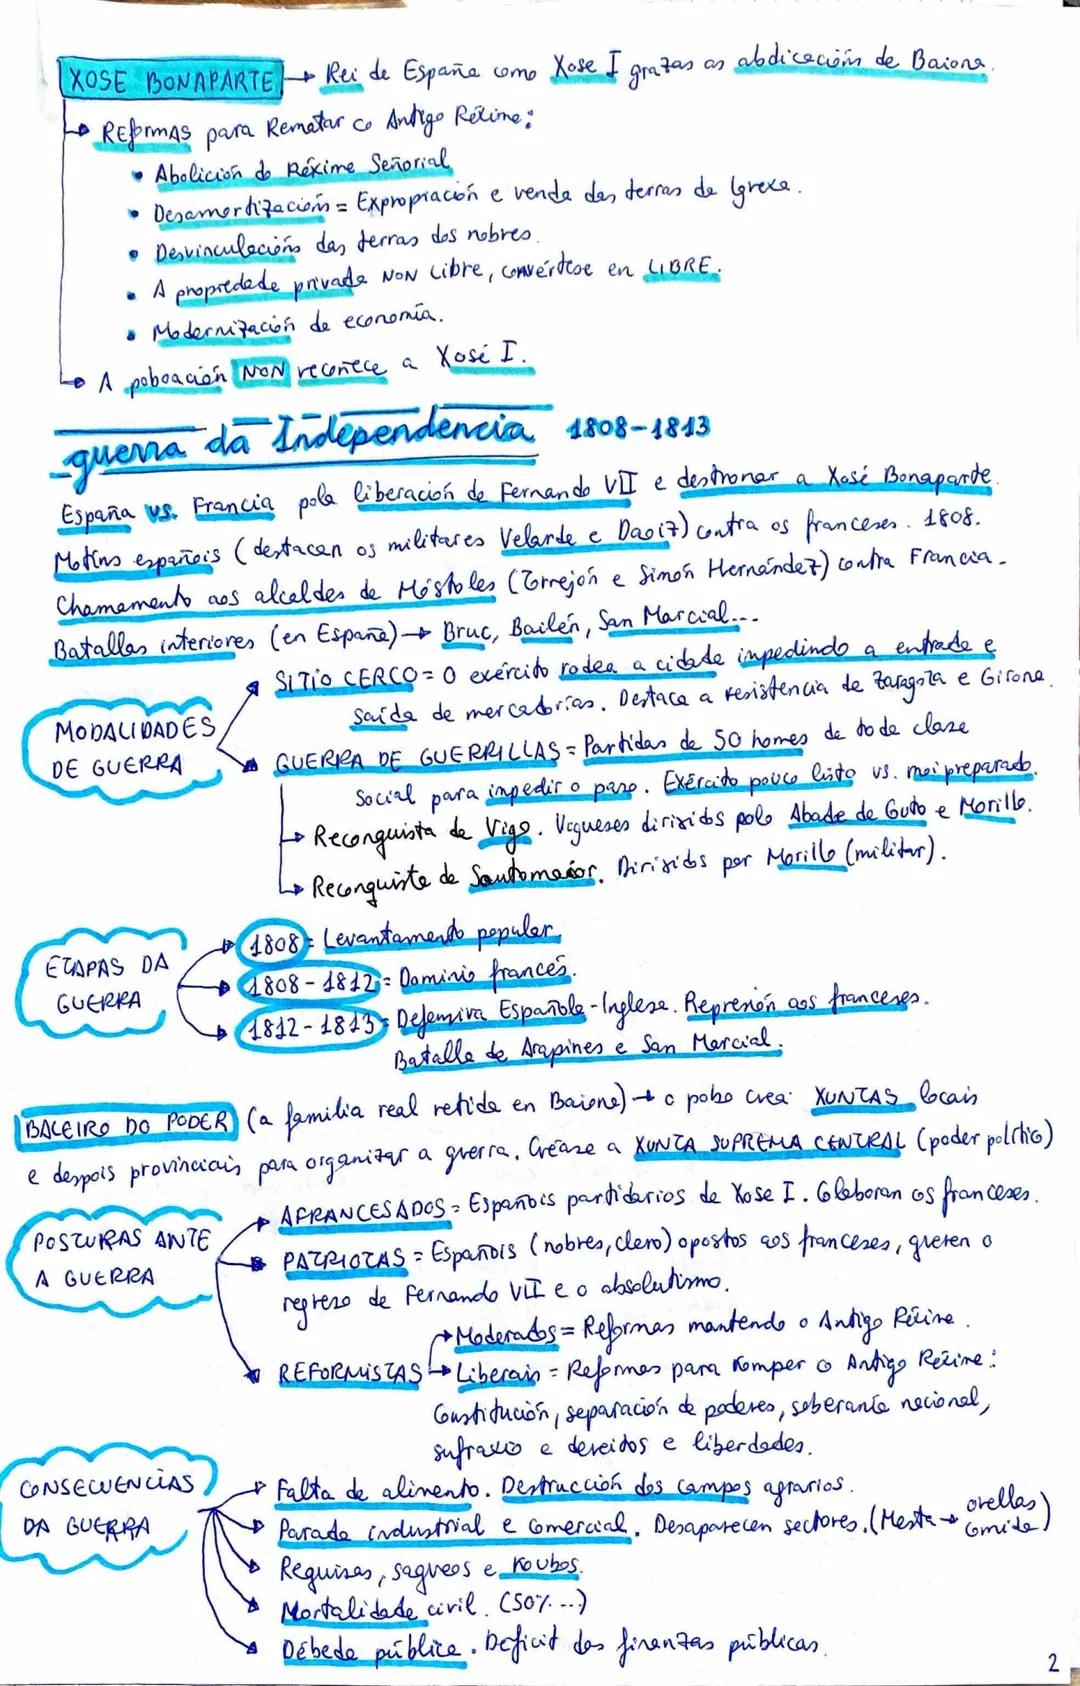 XOSE BONAPARTE → Rei de España como Xose I grazas as abdicacións de Baiona.
→ REfORMAS para Rematar co Antigo Réxime:
• Abolición do Réxime Señorial
• Desamortización = Expropiación e venda das terras da Igrexa.
• Desvinculación das terras dos nobres.
• A propiedade privada NON Libre, convértese en LIBRE.
• Modernización da economía.
→ A poboación NON recoñece a Xosé I.
guerra da Independencia 1808-1813
España vs. Francia pola liberación de Fernando VII e destronar a Xosé Bonaparte.
Motíns españois (destacan os militares Velarde e Daoiz) contra os franceses. 1808.
Chamamento aos alcaldes de Móstoles (Torrejón e Simón Hernández) contra Francia.
Batallas interiores (en España) → Bruc, Bailén, San Marcial...
MODALIDADES DE GUERRA
→ SITIO CERCO = O exército rodea a cidade impedindo a entrada e
saída de mercadorías. Destaca a resistencia de Zaragoza e Girona.
→ GUERRA DE GUERRILLAS = Partidas de 50 homes de toda clase
social para impedir o paso. Exército pouco listo vs. moi preparado.
→ Reconquista de Vigo. Vigueses dirixidos polo Abade de Couto e Morillo.
→ Reconquista de Soutomaior. Dirixidos por Morillo (militar).
ETAPAS DA GUERRA
→ 1808 = Levantamento popular.
→ 1808-1812 = Dominio francés.
→ 1812-1813 = Defensiva Española-Inglesa. Represión aos franceses.
Batalla de Arapines e San Marcial.
BALEIRO DO PODER (a familia real retida en Baiona) → o pobo crea XUNTAS locais
e despois provinciais para organizar a guerra. Créase a XUNTA SUPREMA CENTRAL (poder político)
POSTURAS ANTE A GUERRA
→ AFRANCESADOS = Españois partidarios de Xose I. Colaboran cos franceses.
→ PATRIOTAS = Españois (nobres, clero) opostos aos franceses, queren o
regreso de Fernando VII e o absolutismo.
→ REFORMISTAS
→ Moderados = Reformas mantendo o Antigo Réxime.
→ Liberais = Reformas para romper o Antigo Réxime:
Constitución, separación de poderes, soberanía nacional,
sufraxio e dereitos e liberdades.
CONSECUENCIAS DA GUERRA
→ Falta de alimento. Destrucción dos campos agrarios.
→ Parada industrial e comercial. Desaparecen sectores. (Mesta → ovellas comida)
→ Requisas, saqueos e roubos.
→ Mortalidade civil. (50%...)
→ Débeda pública. Deficit das finanzas públicas.
2